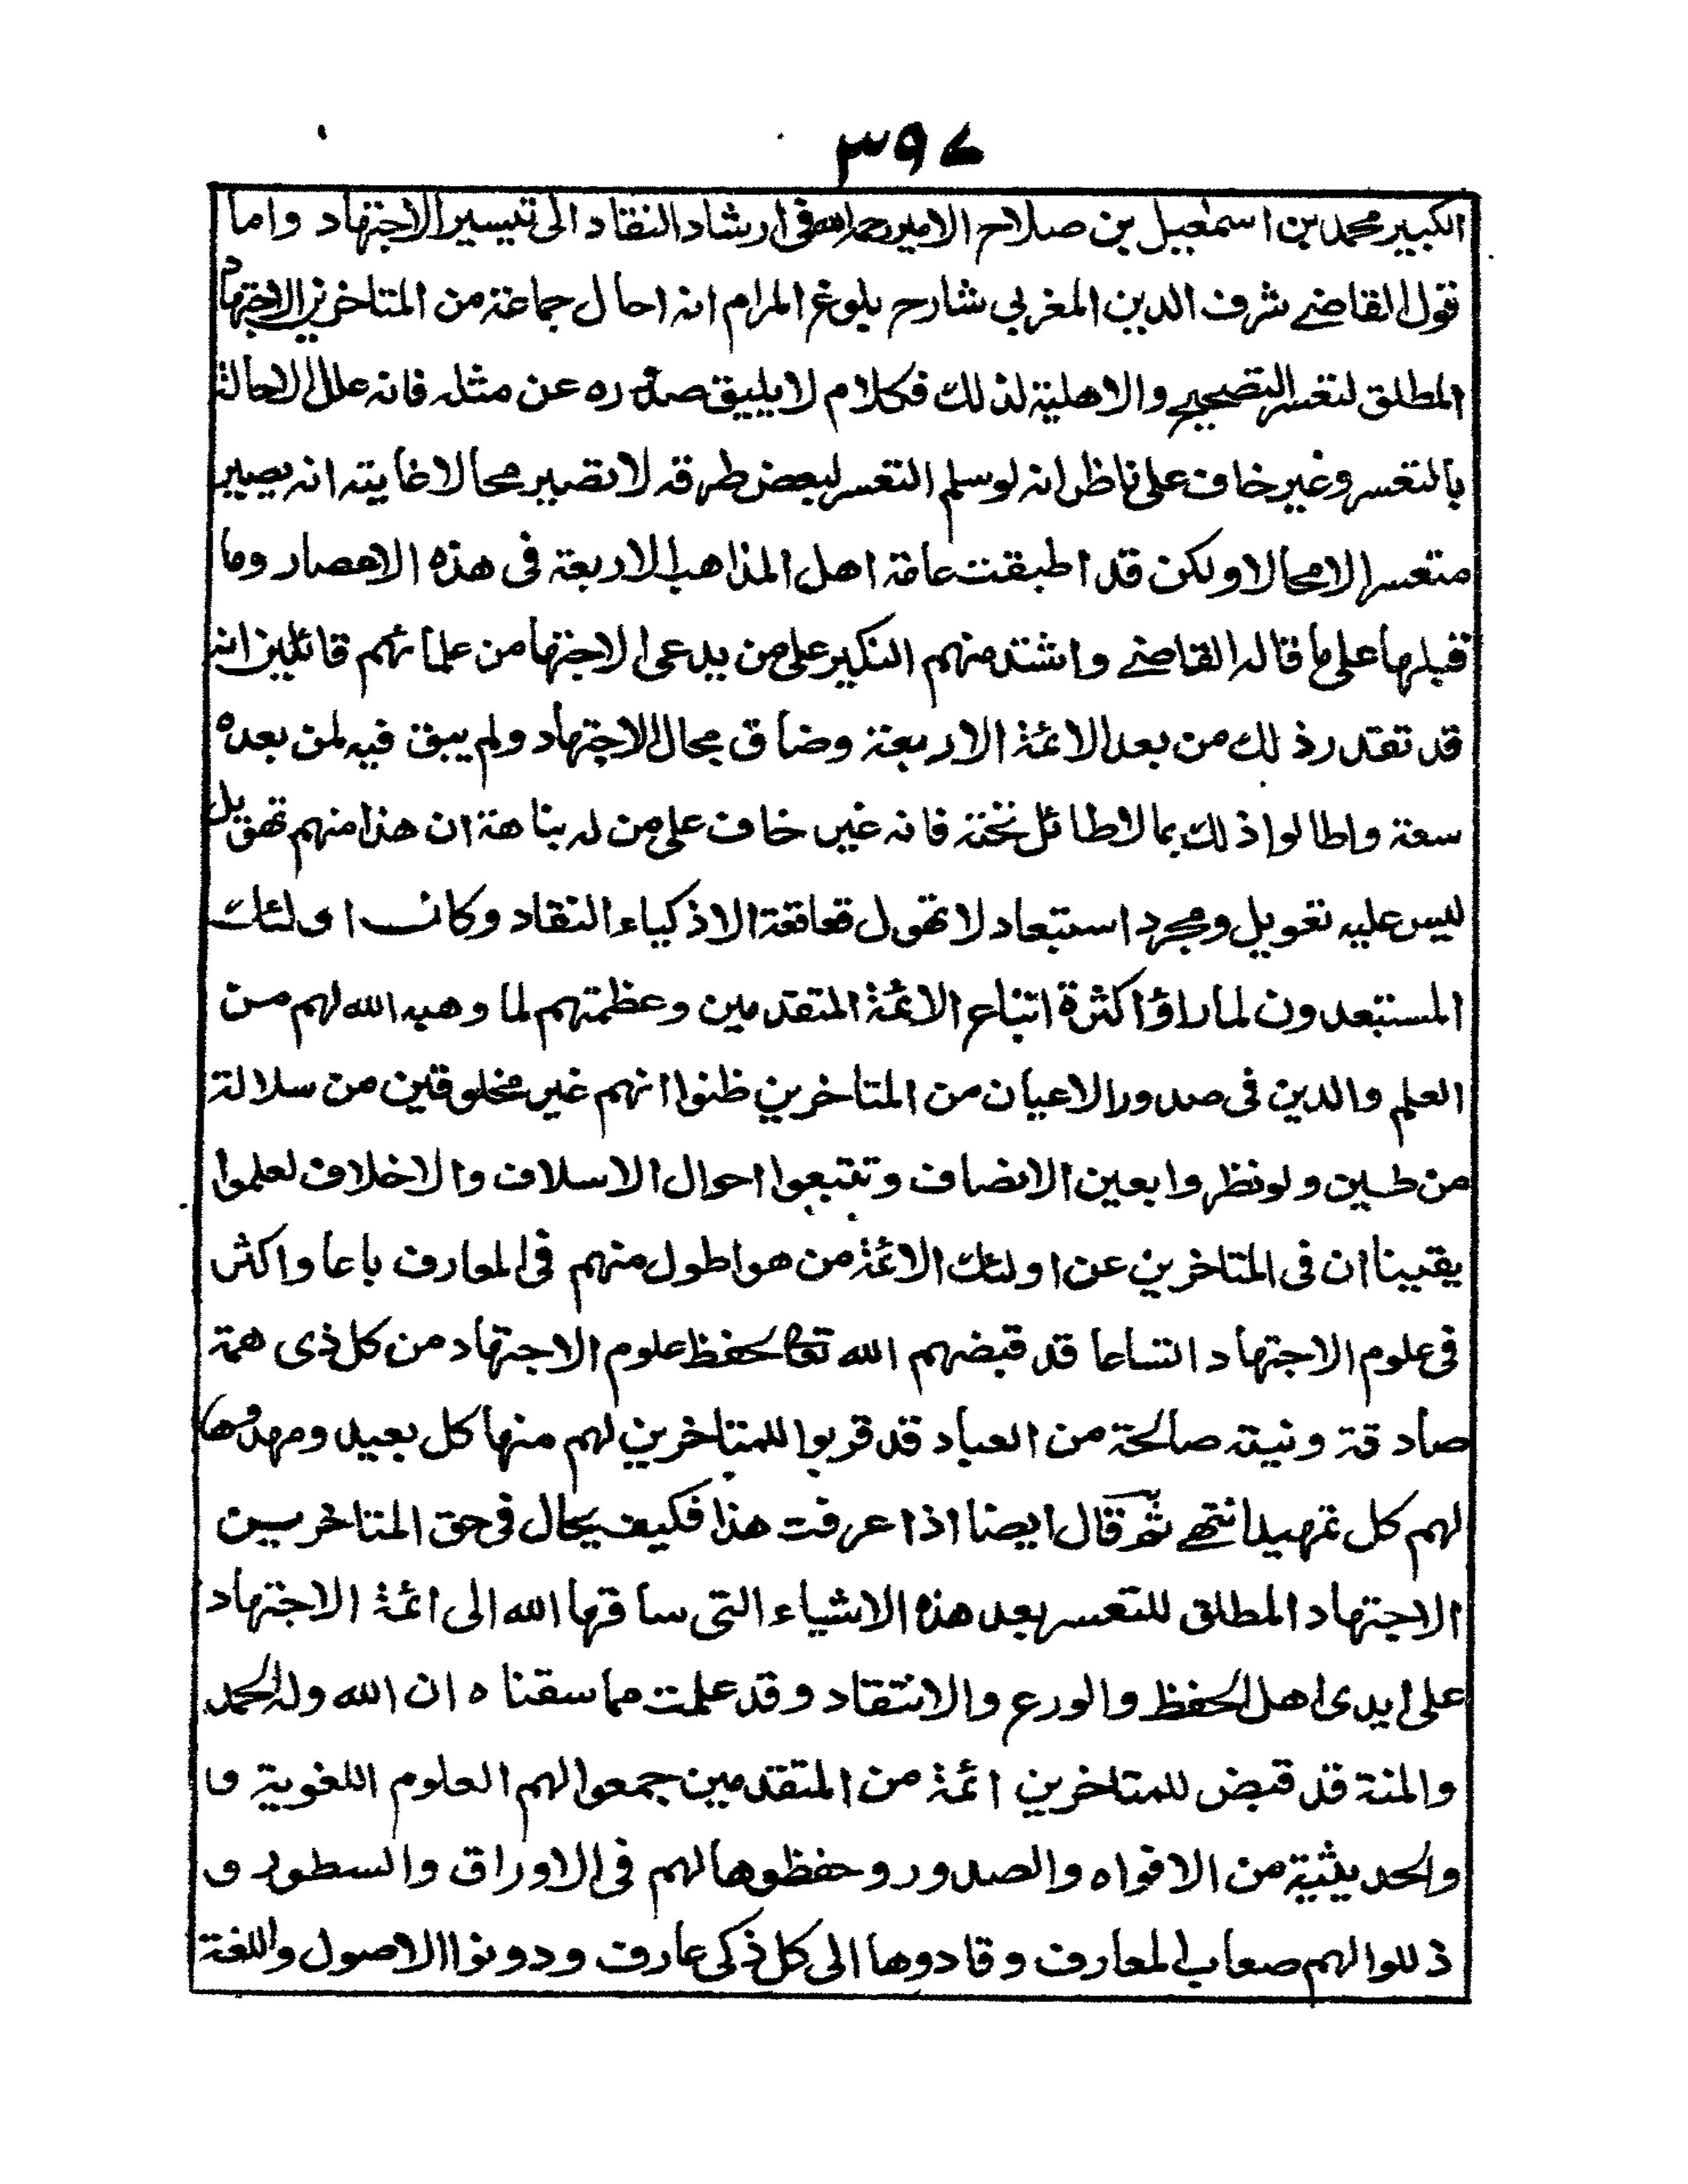 ٣٩٧
الكبير محمد بن اسمعيل بن صلاح الامير رحمه الله فى ارشاد النقاد الى تيسير الاجتهاد واما
قول القاضے شرف الدين المغربي شارح بلوغ المرام انه احال جماعة من المتاخرين الاجتهاد
المطلق لتعسر التصحيح والاهلية لذلك فكلام لا يليق صدوره عن مثله فانه علل الاحالة
بالتعسر وغير خاف على ناظر انه لو سلم التعسر لبعض طرقه لا تصير محالا غايته انه يصير
متعسرا لا محالا ولكن قد اطبقت عامة اهل المذاهب الاربعة فى هذه الاعصار وما
قبلها على ما قاله القاضے واشتد منهم النكير على من يدعى الاجتها من علمائهم قائلين انه
قد تعذر ذلك من بعد الائمة الاربعة وضاق مجال الاجتهاد ولم يبق فيه لمن بعده
سعة واطالوا ذلك بما لا طائل تحته فانه غير خاف على من له نباهة ان هذا منهم تهويل
ليس عليه تعويل ومجرد استبعاد لا تهول قعاقعة الاذكياء النقاد وكان اولئك
المستبعدون لما راؤا كثرة اتباع الائمة المتقدمين وعظمتهم لما وهبه الله لهم من
العلم والدين فى صدور الاعيان من المتاخرين ظنوا انهم غير مخلوقين من سلالة
من طين ولو نظروا بعين الانصاف وتتبعوا احوال الاسلاف والاخلاف لعلموا
يقينا ان فى المتاخرين عن اولئك الائمة من هو اطول منهم فى المعارف باعا واكثر
فى علوم الاجتهاد اتساعا قد قبضهم الله تعا لحفظ علوم الاجتهاد من كل ذى همة
صادقة ونية صالحة من العباد قد قربوا للمتاخرين لهم منها كل بعيد ومهدوها
لهم كل تمهيد انتهے ثم قال ايضا اذا عرفت هذا فكيف يحال فى حق المتاخرين
الاجتهاد المطلق للتعسر بعد هذه الاشياء التى ساقها الله الى ائمة الاجتهاد
على ايدى اهل الحفظ والورع والانتقاد وقد علمت مما سقناه ان الله وله الحمد
والمنة قد قبض للمتاخرين ائمة من المتقدمين جمعوا لهم العلوم اللغوية و
والحديثية من الافواه والصدور وحفظوها لهم فى الاوراق والسطور و
ذللوا لهم صعاب المعارف وقادوها الى كل ذكى عارف ودونوا الاصول واللغة